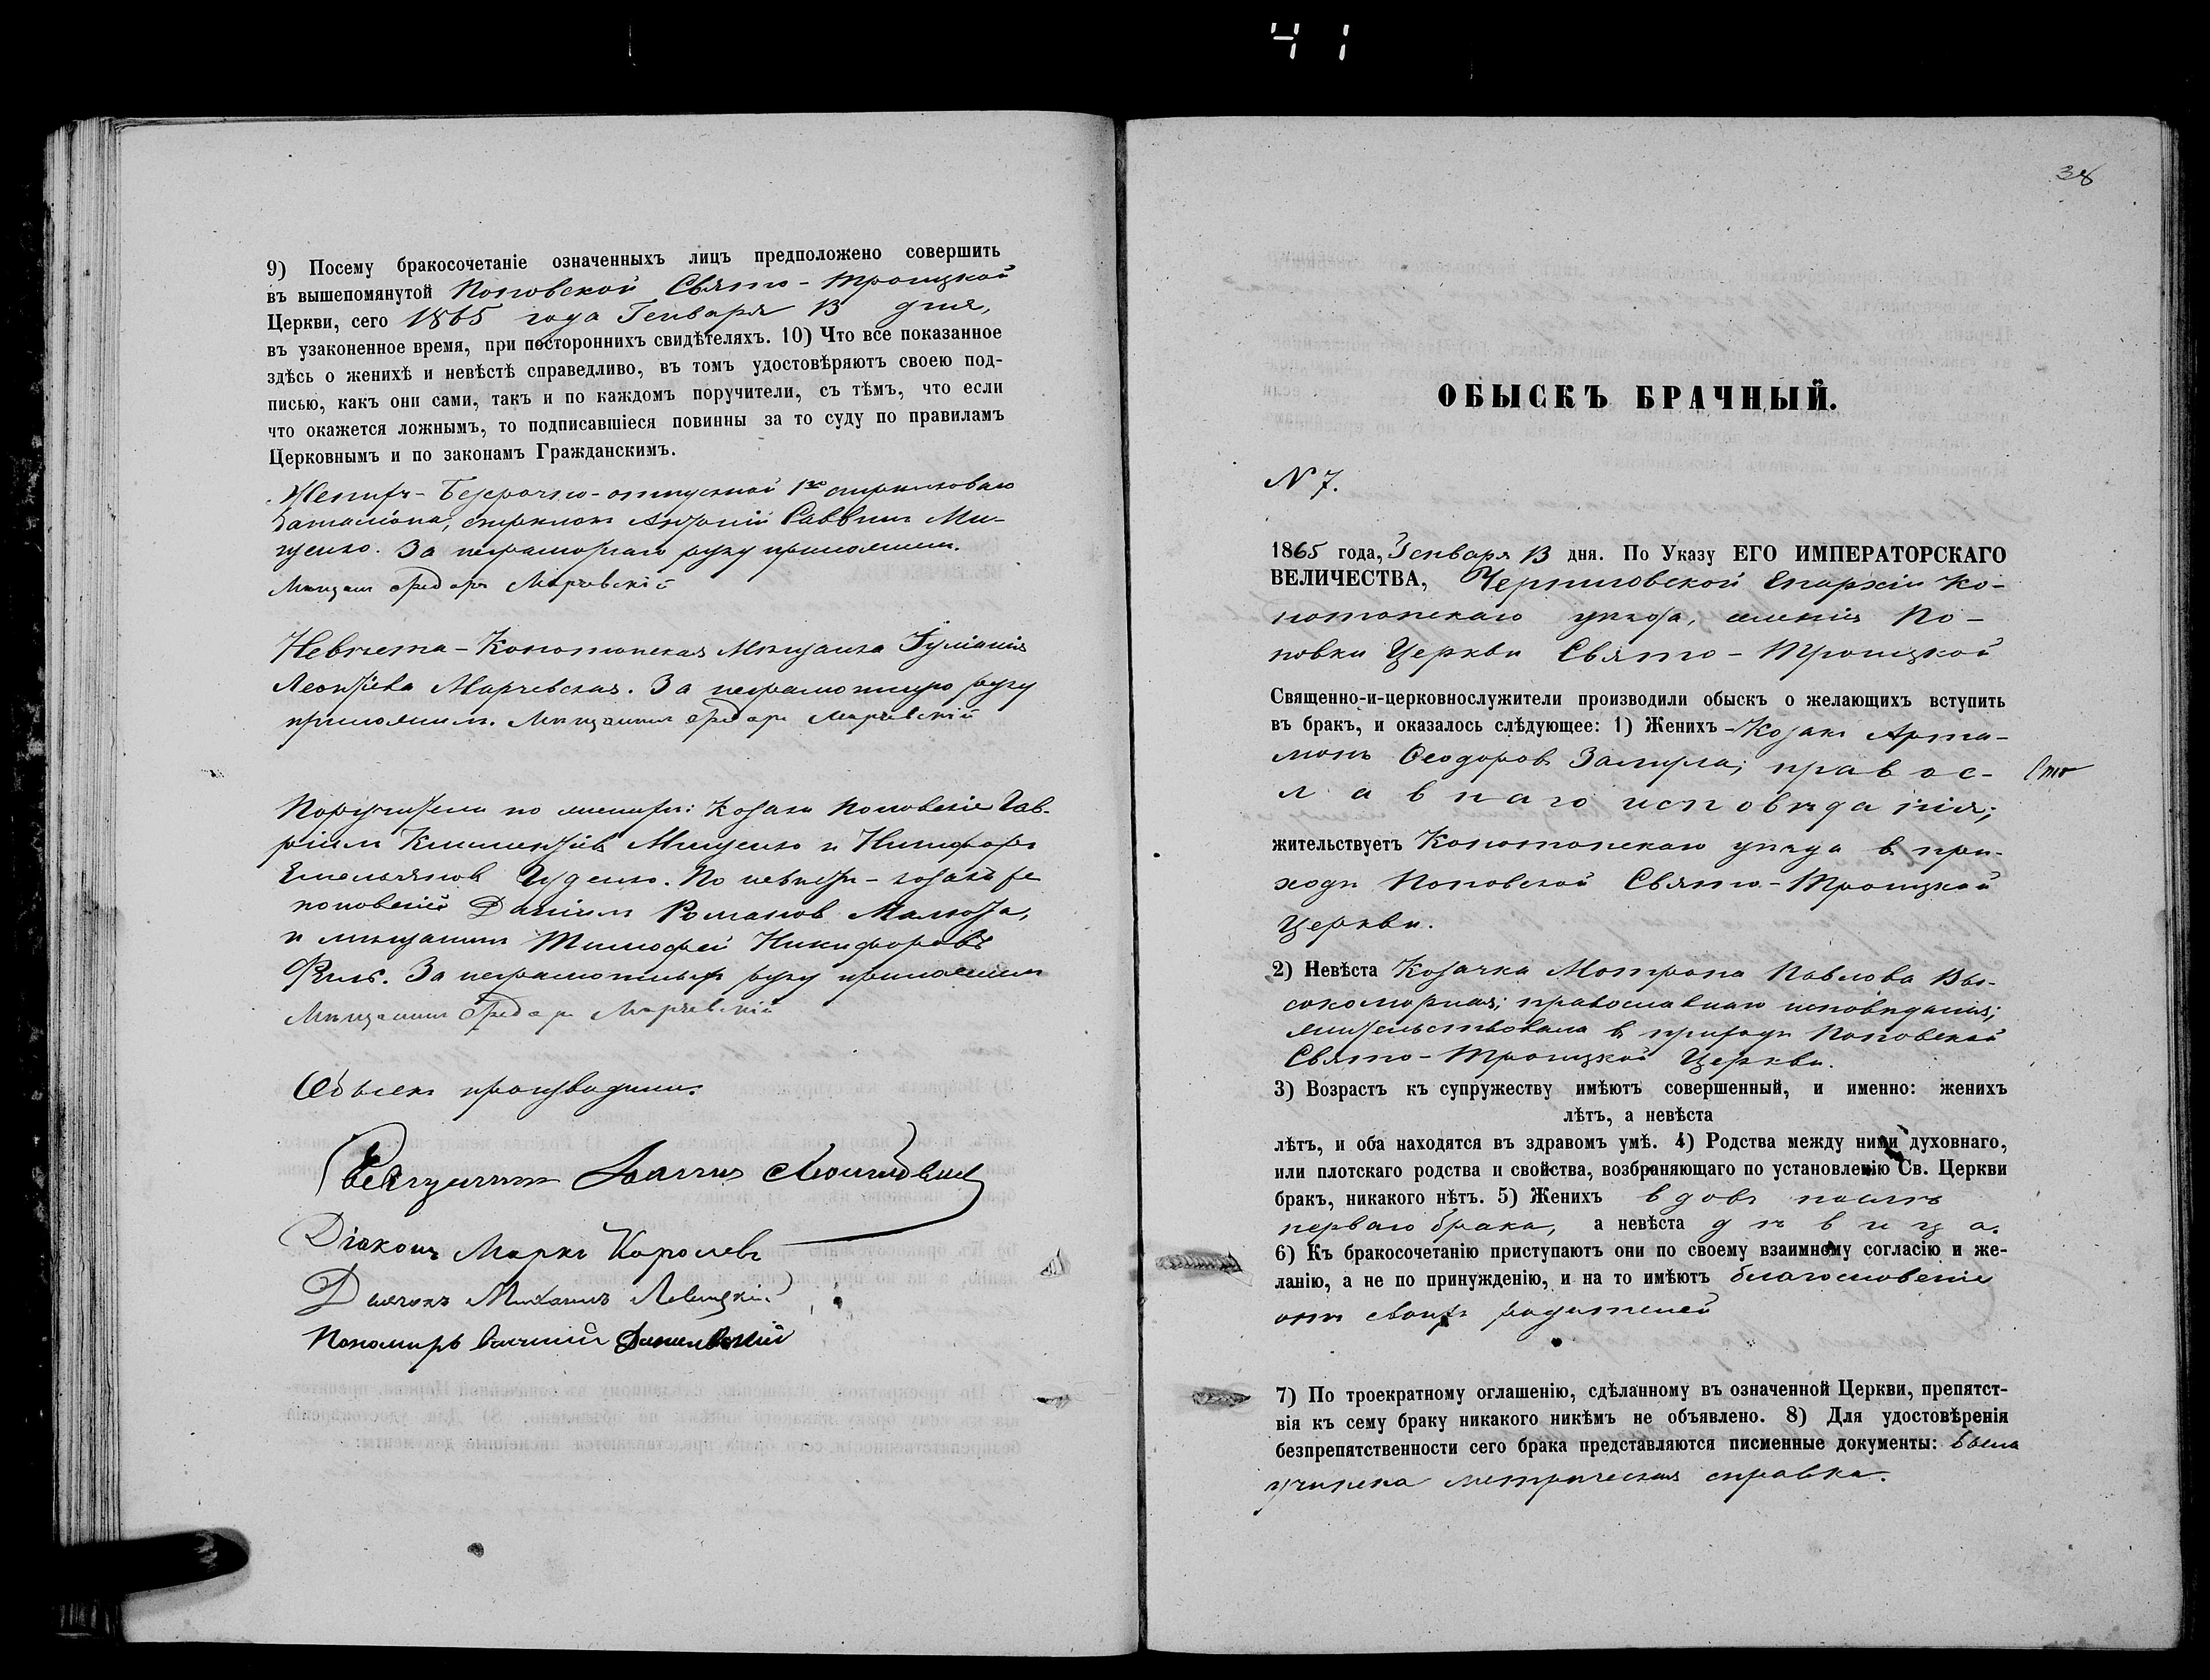 41
9) Посему бракосочетаніе означенныхъ лицъ предположено совершить
въ вышепомянутой Поповской Свято-Троицкой
Церкви, сего 1865 года Генваря 13 дня,
въ узаконенное время, при постороннихъ свидѣтеляхъ. 10) Что все показанное
здѣсь о женихѣ и невѣстѣ справедливо, въ томъ удостовѣряютъ своею под-
писью, какъ они сами, такъ и по каждомъ поручители, съ тѣмъ, что если
что окажется ложнымъ, то подписавшіеся повинны за то суду по правиламъ
Церковнымъ и по законамъ Гражданскимъ.
Женихъ-Безсрочно-отпускной 1го стрѣлковаго
баталіона, стрѣлокъ Антоній Саввинъ Ми-
щенко. За неграмотнаго руку приложилъ
Мѣщан Федоръ Марчевскій
Невѣста-Конотопская Мѣщанка Іуліанія
Леонтіева Марчевская. За неграмотную руку
приложилъ. Мѣщанинъ Федоръ Марчевскій
Поручители по женихѣ: Козаки Поповскіе Гав-
ріилъ Климентіевъ Мищенко и Никифоръ
Емельяновъ Гуденко. По невѣстѣ - козакъ
поповскій Даніилъ Романовъ Малюта,
и мѣщанинъ Тимофей Никифоровъ
Филь. За неграмотныхъ руку приложилъ
Мѣщанинъ Федоръ Марчевскій
Обыскъ производили:
Священникъ Іоаннъ
Діаконъ Маркъ Королевъ
Дьячокъ Михаилъ Левицкій
Пономарь Василій
38
ОБЫСКЪ БРАЧНЫЙ.
N 7.
1865 года, Генваря 13 дня. По Указу ЕГО ИМПЕРАТОРСКАГО
ВЕЛИЧЕСТВА, Черниговской Епархіи Ко-
нотопскаго уѣзда, селенія По-
повки Церкви Свято-Троицкой
Священно-и-церковнослужители производили обыскъ о желающихъ вступить
въ бракъ, и оказалось слѣдующее: 1) Женихъ - Козакъ Арта-
монъ Ѳеодоровъ Замула; правос-
лавнаго исповѣданія;
жительствуетъ Конотопскаго уѣзда въ при-
ходѣ Поповской Свято-Троицкой
Церкви.
2) Невѣста Козачка Мотрона Павлова Вы-
сокоморная; православнаго исповѣданія;
жительствовала въ приходѣ Поповской
Свято-Троицкой Церкви.
3) Возрастъ къ супружеству имѣютъ совершенный, и именно: женихъ
лѣтъ, а невѣста
лѣтъ, и оба находятся въ здравомъ умѣ. 4) Родства между ними духовнаго,
или плотскаго родства и свойства, возбраняющаго по установленію Св. Церкви
бракъ, никакого нѣтъ. 5) Женихъ вдовъ послѣ
перваго брака, а невѣста дѣвица.
6) Къ бракосочетанію приступаютъ они по своему взаимному согласію и же-
ланію, а не по принужденію, и на то имѣютъ благословеніе
отъ своихъ родителей
7) По троекратному оглашенію, сдѣланному въ означенной Церкви, препятст-
вія къ сему браку никакого никѣмъ не объявлено. 8) Для удостовѣренія
безпрепятственности сего брака представляются писменные документы: была
учинена метрическая справка.